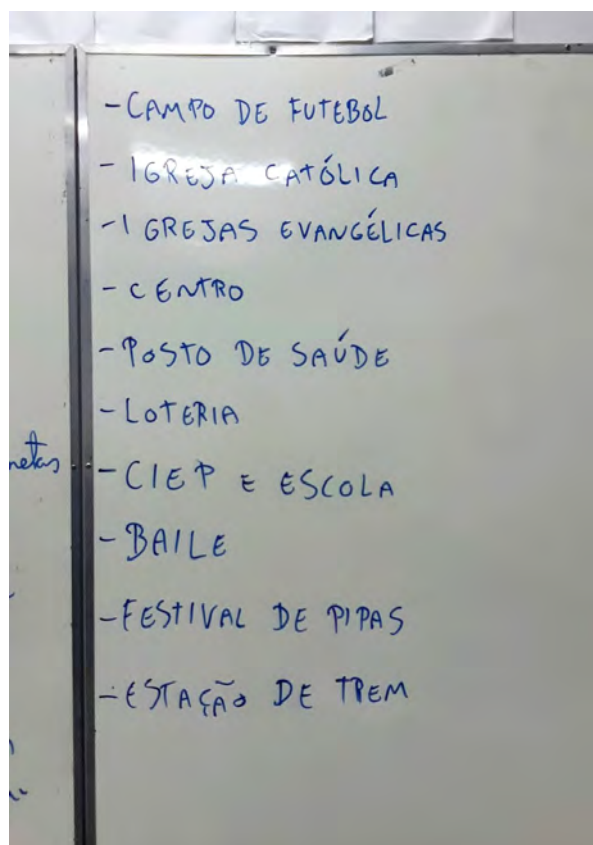 - CAMPO DE FUTEBOL
- IGREJA CATÓLICA
- IGREJAS EVANGÉLICAS
- CENTRO
- POSTO DE SAÚDE
- LOTERIA
- CIEP E ESCOLA
- BAILE
- FESTIVAL DE PIPAS
- ESTAÇÃO DE TREM